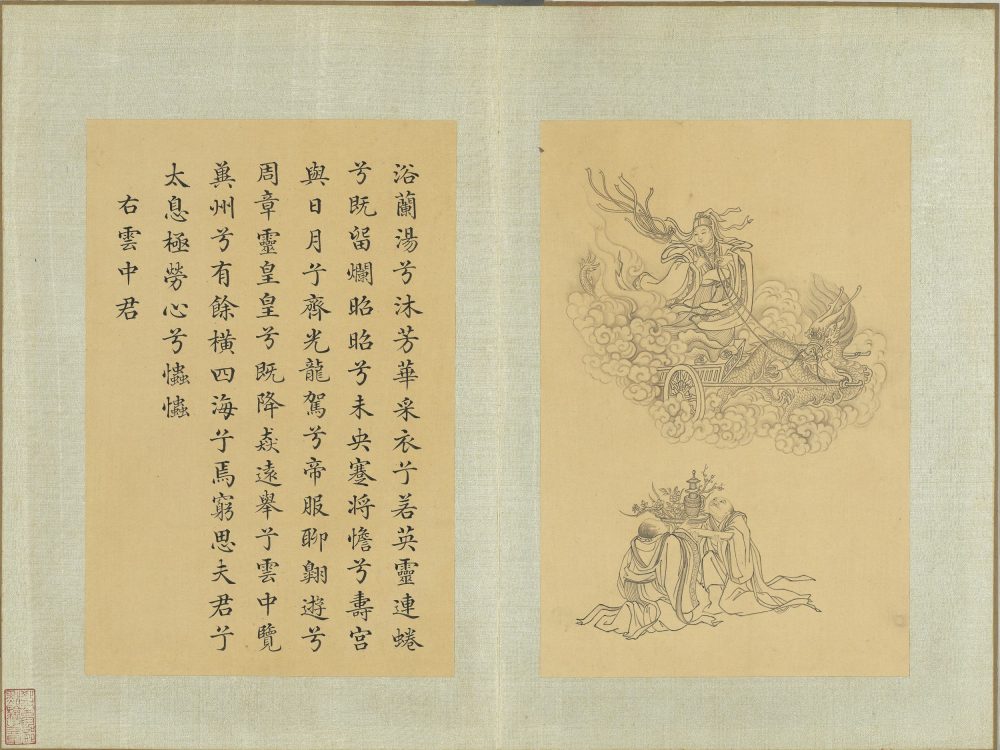 浴蘭湯兮沐芳華采衣兮若英靈連蜷
兮既留爛昭昭兮未央蹇將憺兮壽宮
與日月兮齊光龍駕兮帝服聊翺遊兮
周章靈皇皇兮既降猋遠舉兮雲中覽
冀州兮有餘橫四海兮焉窮思夫君兮
太息極勞心兮𢥞𢥞
右雲中君